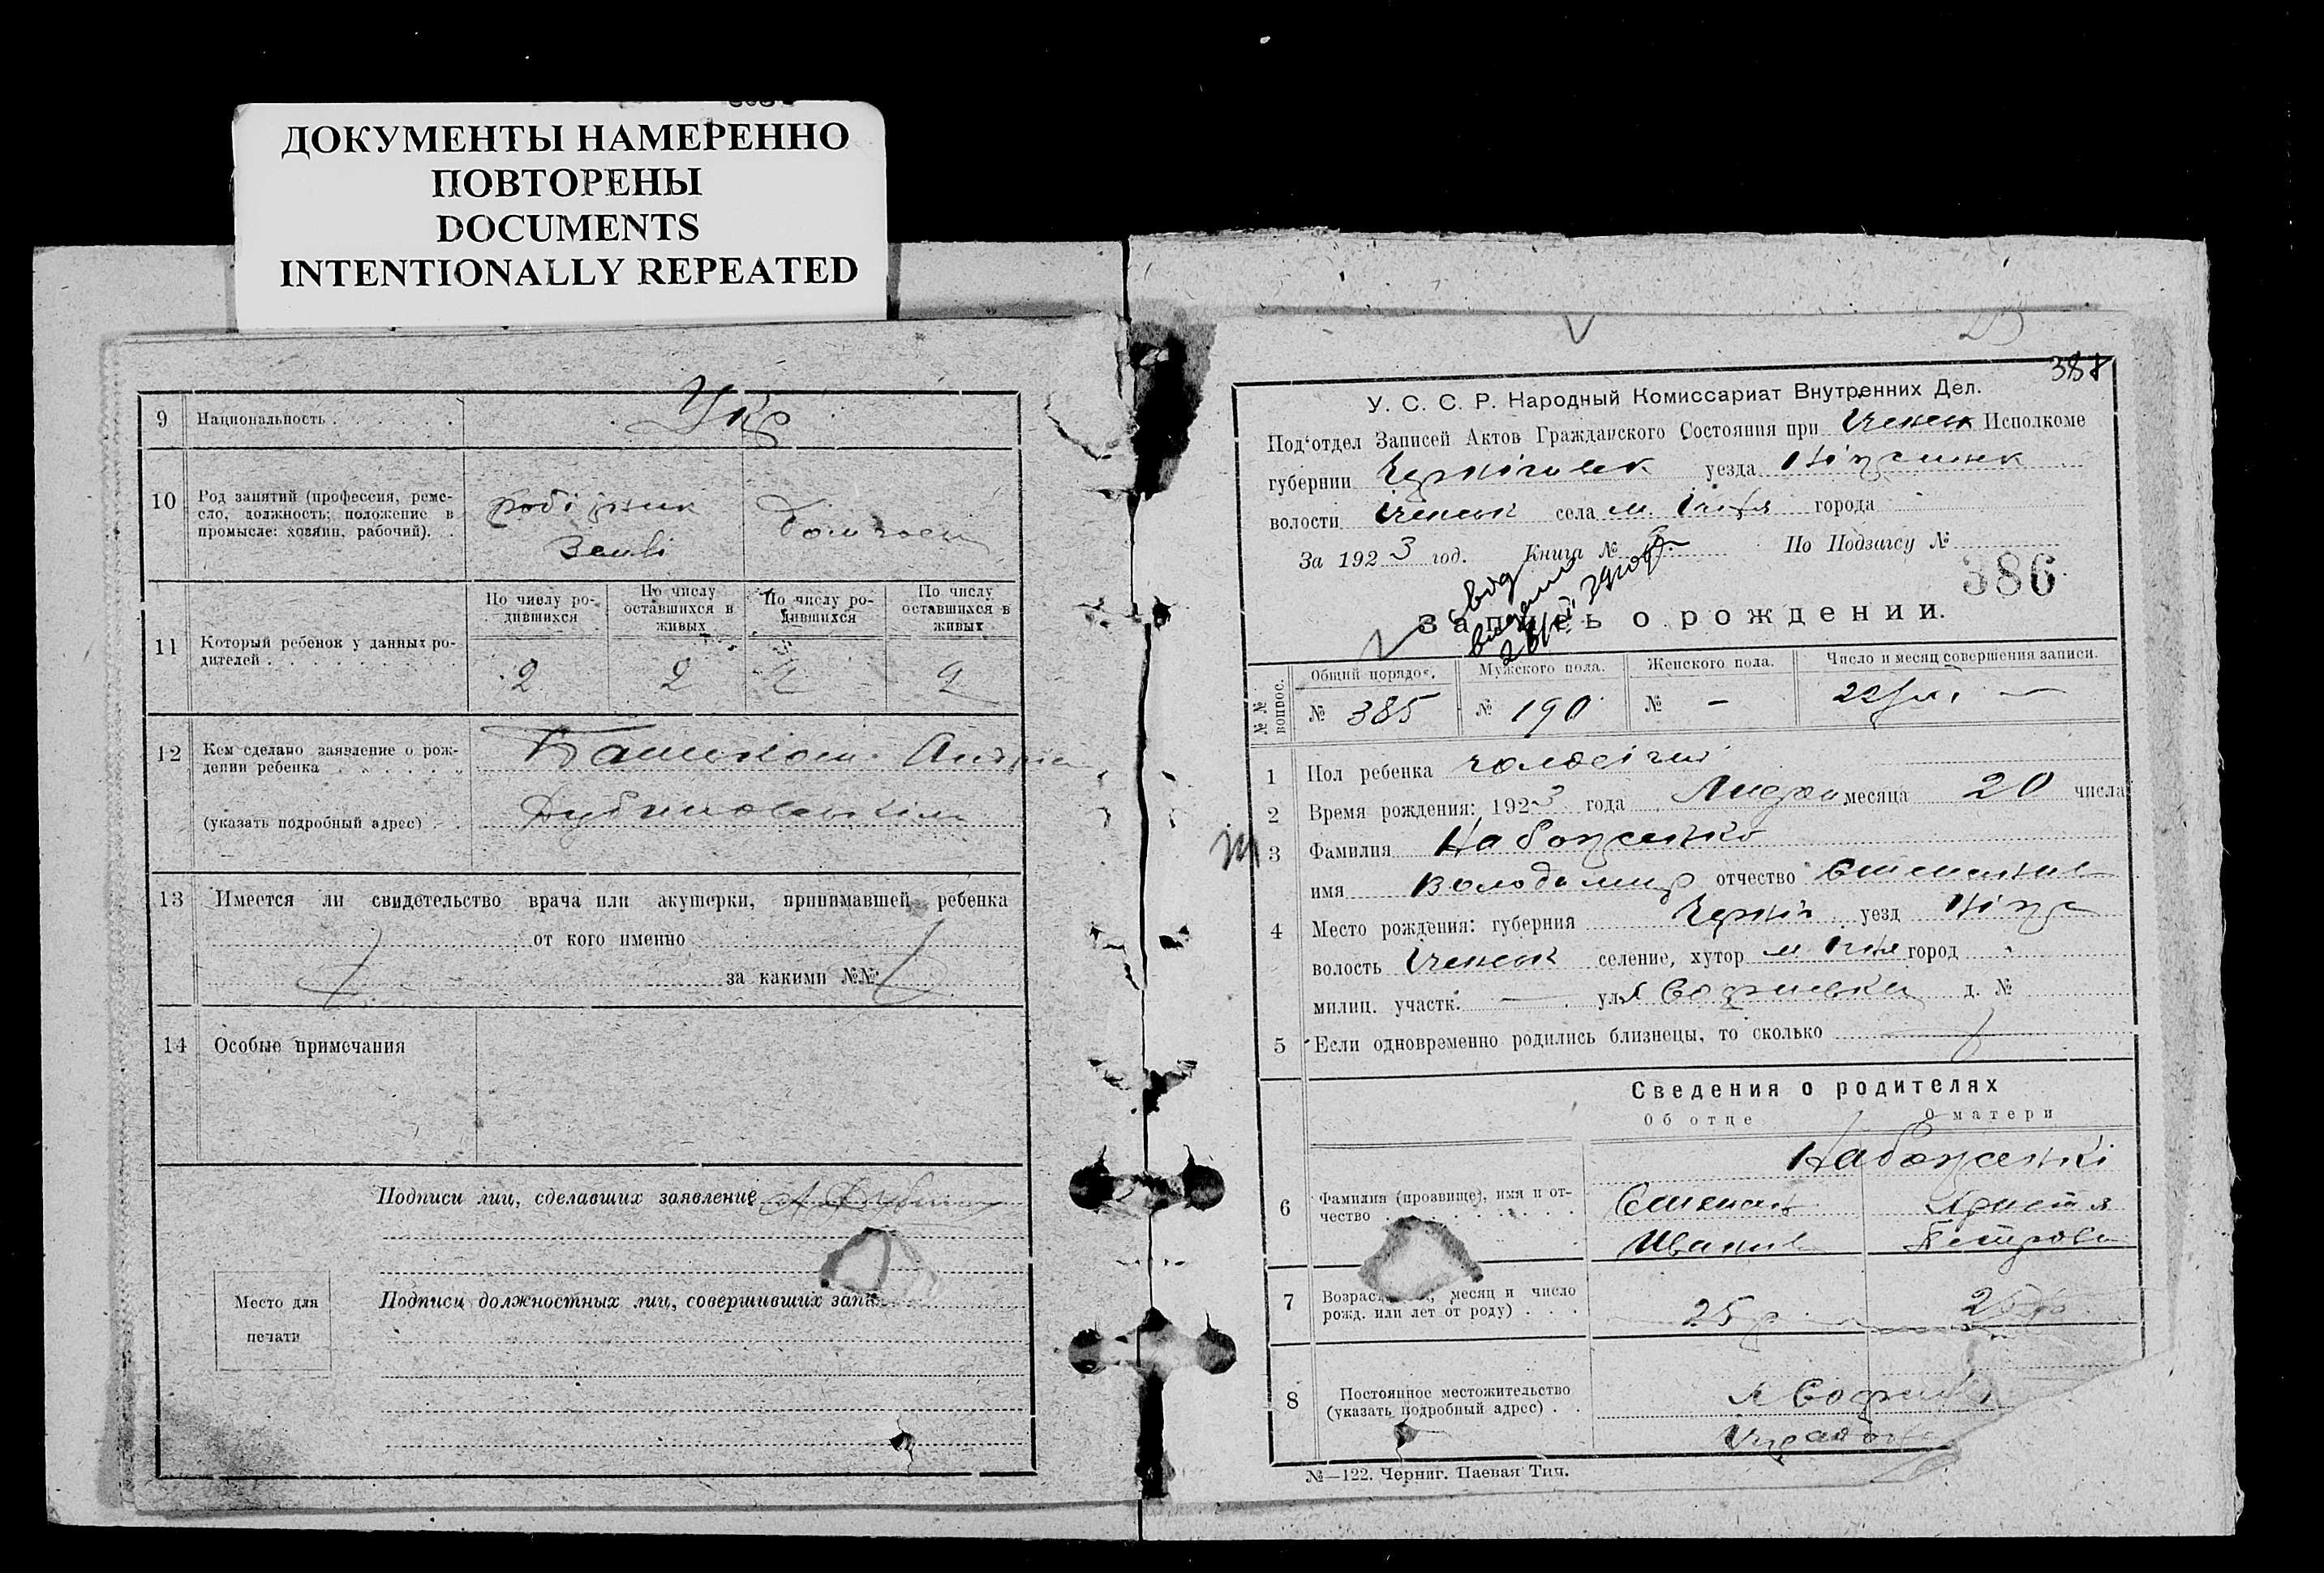 ДОКУМЕНТЫ НАМЕРЕННО
ПОВТОРЕНЫ
DOCUMENTS
INTENTIONALLY REPEATED
9 Национальность Укр
10 Род занятий (профессия, реме-
сло, должность; положение в
промысле: хозяин, рабочий).
робітник
Землі
Домхоз
11 Который ребенок у данных ро-
дителей
По числу ро-
дившихся
По числу
оставшихся в
живых
По числу ро-
дившихся
По числу
оставшихся в
живых
2 2 2 2
12 Кем сделано заявление о рож-
дении ребенка
(указать подробный адрес)
13 Имеется ли свидетельство врача или акушерки, принимавшей ребенка
от кого именно
за какими №№
14 Особые примечания
Подписи лиц, сделавших заявление
Место для
печати
Подписи должностных лиц, совершивших запи
387
У. С. С. Р. Народный Комиссариат Внутренних Дел.
Под'отдел Записей Актов Гражданского Состояния при Іченськ Исполкоме
губернии Чернігівськ уезда Ніженськ
волости Іченськ села м. Ічня города
За 1923 год. Книга № По Подзагсу №
386
Запись о рождении.
№№ вопрос.
Общий порядок. Мужского пола. Женского пола. Число и месяц совершения записи.
№ 385 № 190 № - 22
1 Пол ребенка чоловічий
2 Время рождения: 1923 года месяца 20 числа
3 Фамилия Набоженко
имя Володимир отчество Степанів
4 Место рождения: губерния Черніг уезд Ніж
волость Іченськ селение, хутор м Ічня город
милиц. участк. — ул. д. №
5 Если одновременно родились близнецы, то сколько
Сведения о родителях
Об отце О матери
Набоженкі
6 Фамилия (прозвище), имя и от-
чество
Степан
Иванів
Христя
Петрівн
7 Возрас месяц и число
рожд. или лет от роду)
25 р
8 Постоянное местожительство
(указать подробный адрес)
№—122. Черниг. Паевая Тип.